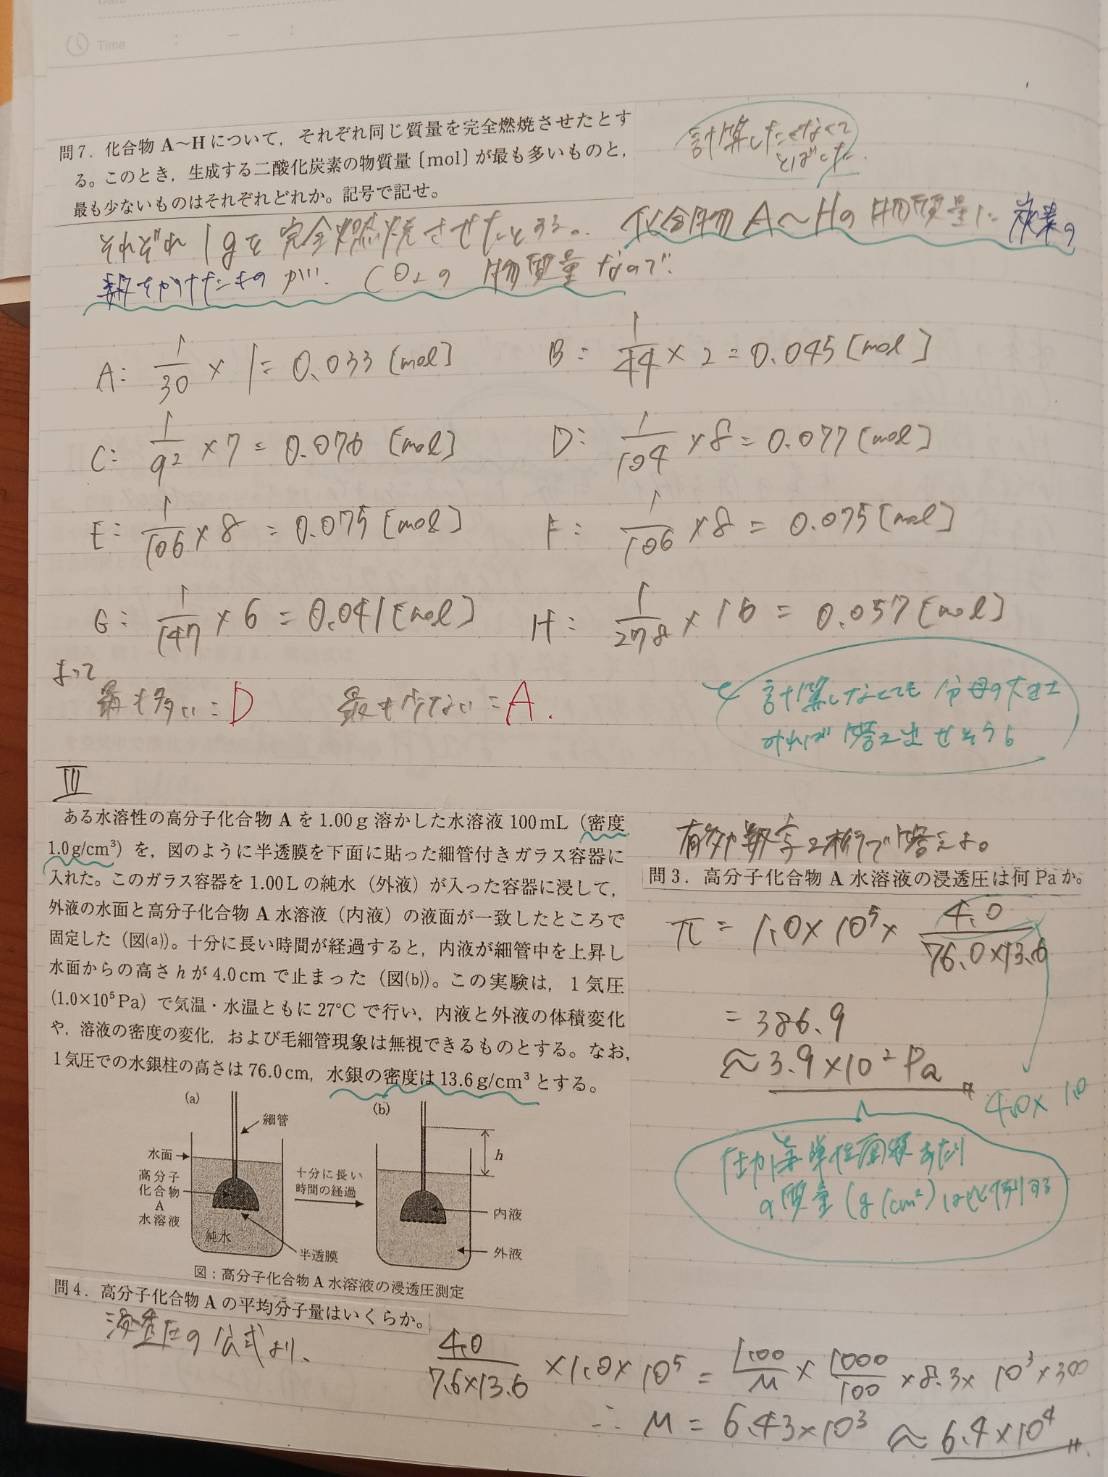 Time : -
問7．化合物A〜Hについて，それぞれ同じ質量を完全燃焼させたとす
る。このとき，生成する二酸化炭素の物質量〔mol〕が最も多いものと，
最も少ないものはそれぞれどれか。記号で記せ。
計算したくなくて
とばした.
それぞれ1gを完全燃焼させたとする。化合物A〜Hの物質量に炭素の
数をかけたものが CO₂の物質量なので
A: 1/30 × 1 = 0.033 [mol] B: 1/44 × 2 = 0.045 [mol]
C: 1/92 × 7 = 0.076 [mol] D: 1/104 × 8 = 0.077 [mol]
E: 1/106 × 8 = 0.075 [mol] F: 1/106 × 8 = 0.075 [mol]
G: 1/147 × 6 = 0.041 [mol] H: 1/278 × 16 = 0.057 [mol]
よって
最も多い: D 最も少ない: A.
計算しなくても 分母の大せ
みれば 答え出せそう
III
ある水溶性の高分子化合物Aを1.00g溶かした水溶液100mL（密度
1.0g/cm³）を，図のように半透膜を下面に貼った細管付きガラス容器に
入れた。このガラス容器を1.00Lの純水（外液）が入った容器に浸して，
外液の水面と高分子化合物A水溶液（内液）の液面が一致したところで
固定した（図(a)）。十分に長い時間が経過すると，内液が細管中を上昇し
水面からの高さhが4.0cmで止まった（図(b)）。この実験は，1気圧
（1.0×10⁵Pa）で気温・水温ともに27℃で行い，内液と外液の体積変化
や，溶液の密度の変化，および毛細管現象は無視できるものとする。なお，
1気圧での水銀柱の高さは76.0cm，水銀の密度は13.6g/cm³とする。
(a)
細管
水面
高分子
化合物
A
水溶液
純水
半透膜
十分に長い
時間の経過
(b)
h
内液
外液
図：高分子化合物A水溶液の浸透圧測定
有効数字2桁で答えよ。
問3．高分子化合物A水溶液の浸透圧は何Paか。
π = 1.0×10⁵× 4.0/76.0×13.6
= 386.9
≈ 3.9×10² Pa
4.0× 1.0
単位面積あたり
の質量(g/cm²)は比例する
問4．高分子化合物Aの平均分子量はいくらか。
浸透圧の公式より、
4.0/7.6×13.6 ×1.0×10⁵ = 1.00/M × 1000/100 ×8.3× 10³×300
∴ M = 6.43×10³ ≈ 6.4×10⁴